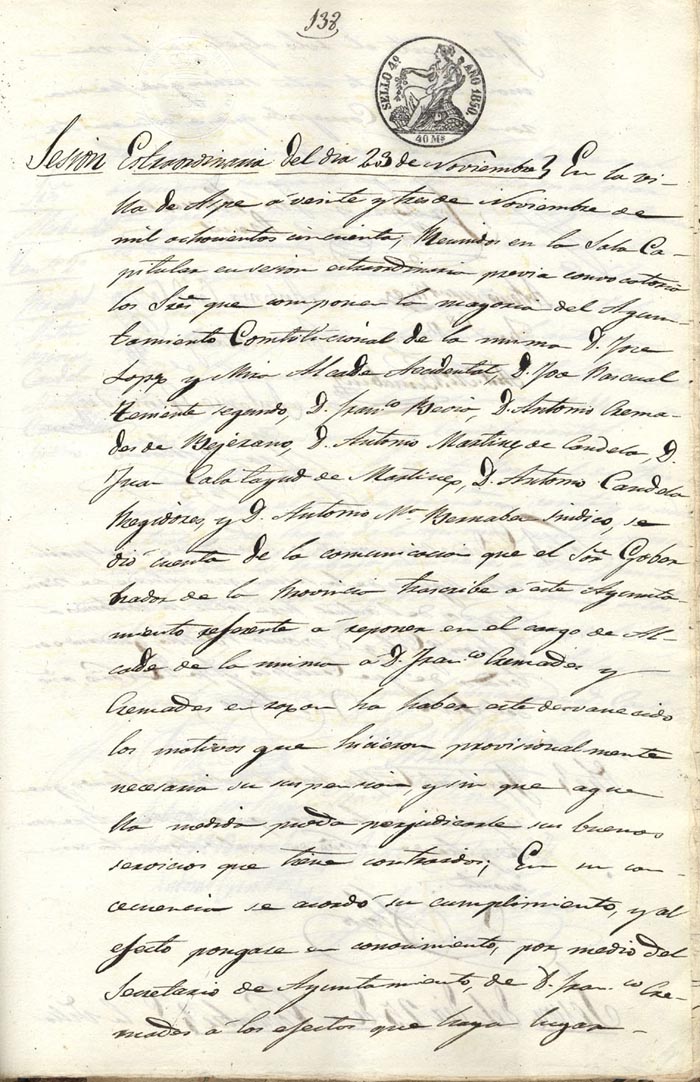 138
SELLO 4º AÑO 1850.
40 Ms
Sesion Estraordinaria del dia 23 de Noviembre} En la vi-
lla de Aspe a veinte y tres de Noviembre de
mil ochocientos cincuenta; Reunidos en la Sala Ca-
pitular en sesion extraordinaria previa convocatoria
los Sres que componen la mayoria del Ayun-
tamiento Constitucional de la misma D. Jose
Lopez y Mira Alcalde Accidental, D. Jose Pascual
teniente segundo, D. Franco Recio, D. Antonio Crema-
des de Bejerano, D. Antonio Martinez de Candela, D.
Juan Calatayud de Martinez, D. Antonio Candela
Regidores, y D. Antonio Ma Bernabeu sindico, se
dió cuenta de la comunicacion que el Sor Gober
nador de la Provincia trascribe a este Ayunta-
miento referente a reponer en el cargo de Al-
calde de la misma a D. Franco Cremades y
Cremades en razon ha haber este desvanecido
los motivos que hicieron provisionalmente
necesaria su suspension, y sin que aque
lla medida pueda perjudicarle sus buenos
servicios que tiene contraidos; En su con-
cecuencia se acordó su cumplimiento, y al
efecto pongase en conocimiento, por medio del
Secretario de Ayuntamiento, de D. Franco Cre-
mades a los efectos que haya lugar-